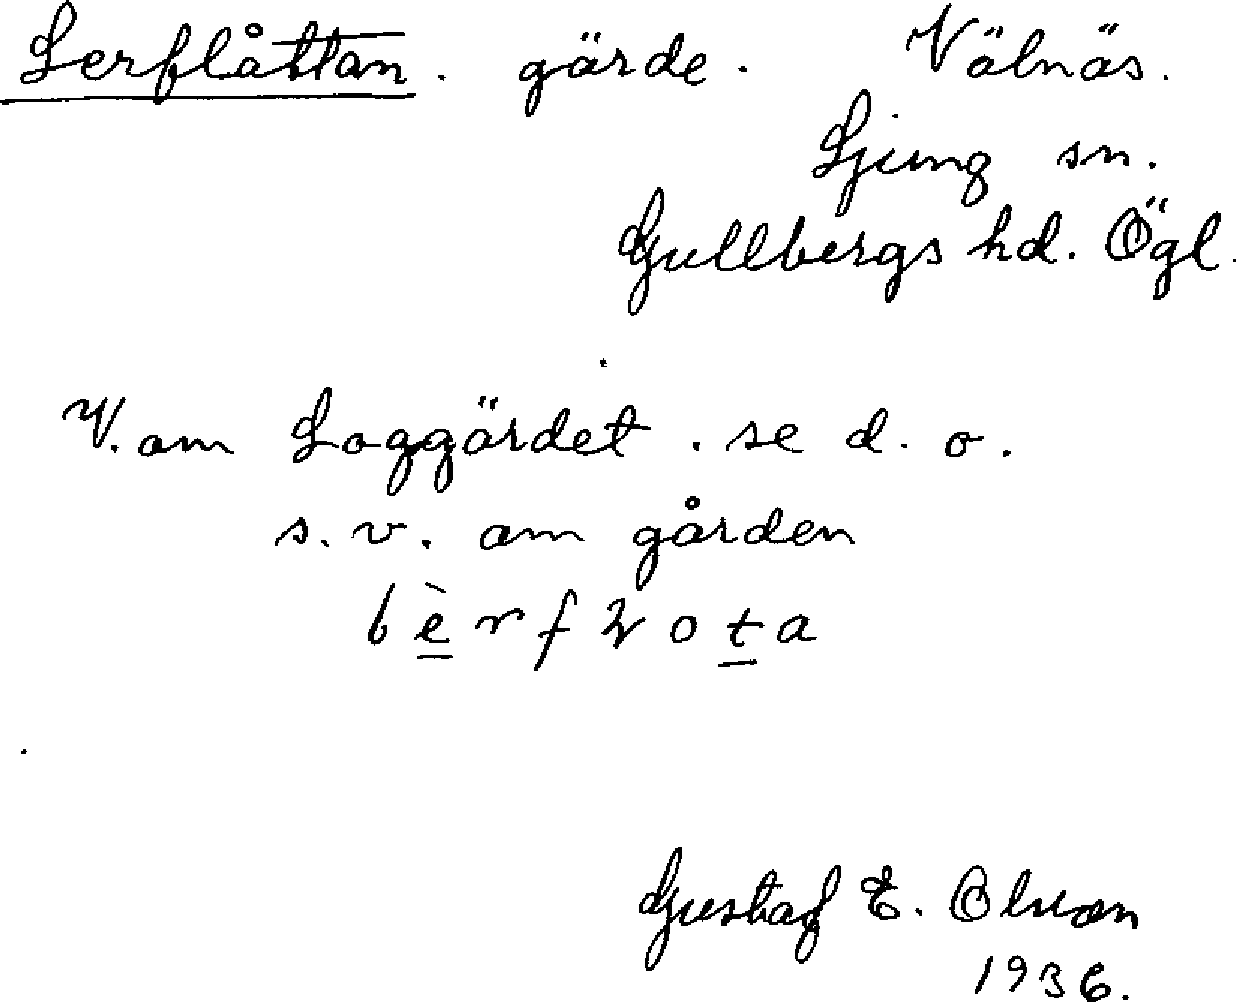 Lerflåttan. gärde. Välnäs.
Ljung sn.
Gullbergs hd. Ögl.
V. om Loggärdet. se d. o.
s. v. om gården
Gustaf E. Olsson
1936.